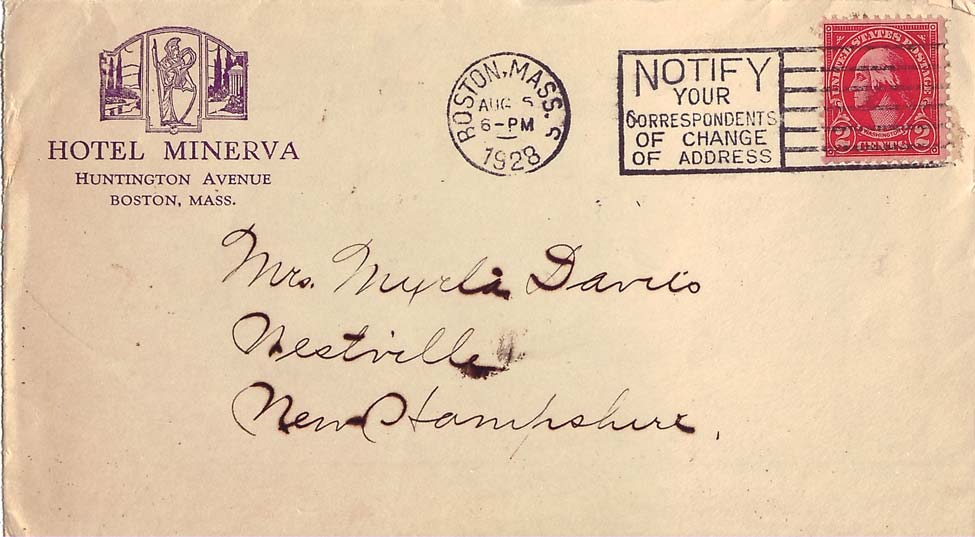 HOTEL MINERVA
HUNTINGTON AVENUE
BOSTON, MASS.
BOSTON, MASS. S
AUG 6
6-PM
1928
NOTIFY
YOUR
CORRESPONDENTS
OF CHANGE
OF ADDRESS
UNITED STATES POSTAGE
WASHINGTON
2 CENTS 2
Mrs. Myrla Davis
Westville
New Hampshire.